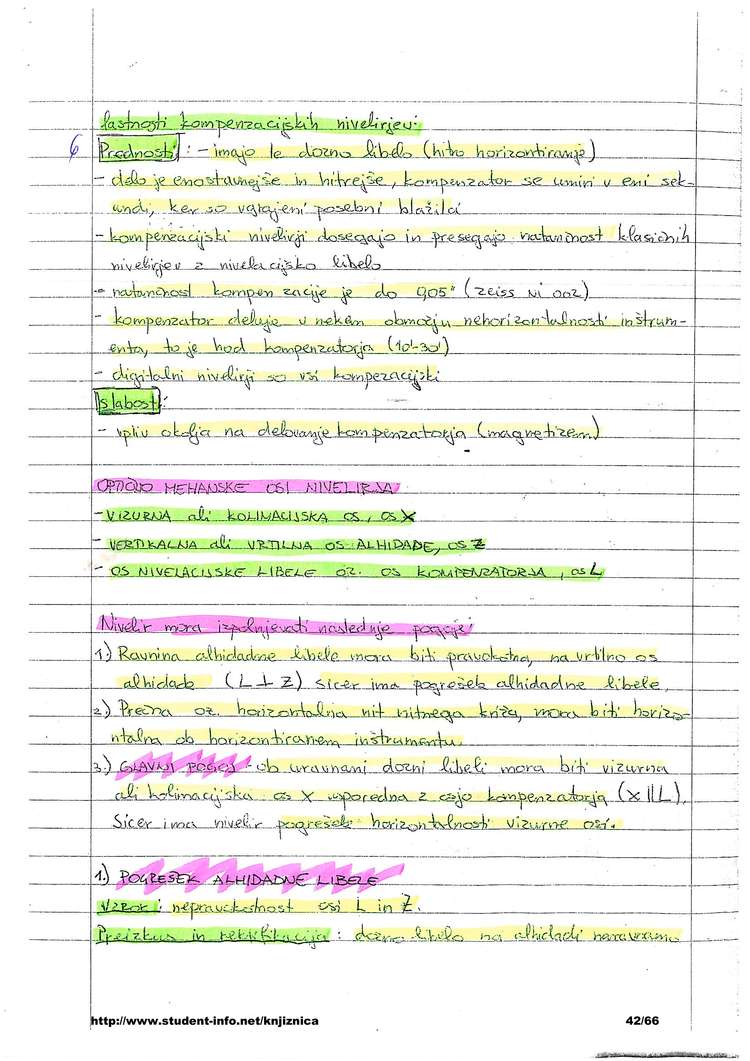 lastnosti kompenzacijskih nivelirjev:
6 Prednosti: - imajo le dozno libelo (hitro horizontiranje)
- delo je enostavnejše in hitrejše, kompenzator se umiri v eni sek-
undi, ker so vgrajeni posebni blažilci
- kompenzacijski nivelirji dosegajo in presegajo natančnost klasičnih
nivelirjev z nivelacijsko libelo
- natančnost kompenzacije je do 0,05" (zeiss Ni 002)
- kompenzator deluje v nekem območju nehorizontalnosti inštrum-
enta, to je hod kompenzatorja (10'-30')
- digitalni nivelirji so vsi kompezacijski
slabosti:
- vpliv okolja na delovanje kompenzatorja (magnetizem)
OPTIČNO MEHANSKE OSI NIVELIRJA
- VIZURNA ali KOLIMACIJSKA OS, OS X
- VERTIKALNA ali VRTILNA OS ALHIDADE, OS Z
- OS NIVELACIJSKE LIBELE OZ. OS KOMPENZATORJA, OS L
Nivelir mora izpolnjevati naslednje pogoje:
1.) Ravnina alhidadne libele mora biti pravokotna, na vrtilno os
alhidade (L ⊥ Z). sicer ima pogrešek alhidadne libele.
2.) Prečna oz. horizontalna nit nitnega križa, mora biti horizo-
ntalna ob horizontiranem inštrumentu.
3.) GLAVNI POGOJ - ob uravnani dozni libeli mora biti vizurna
ali kolimacijska os X vsporedna z osjo kompenzatorja (X || L).
Sicer ima nivelir pogrešek horizontalnosti vizurne osi.
1.) POGREŠEK ALHIDADNE LIBELE
VZROK: nepravokotnost osi L in Z.
Preizkus in rektifikacija: dozno libelo na alhidadi naravnamo
http://www.student-info.net/knjiznica
42/66